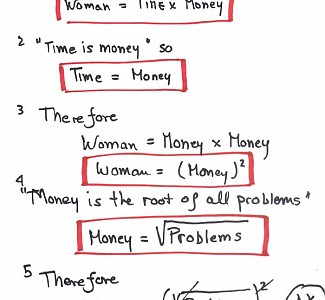 Woman = Time x Money
2 "Time is money" so
Time = Money
3 Therefore
Woman = Money x Money
Woman = (Money)²
4
"Money is the root of all problems"
Money = √Problems
5 Therefore